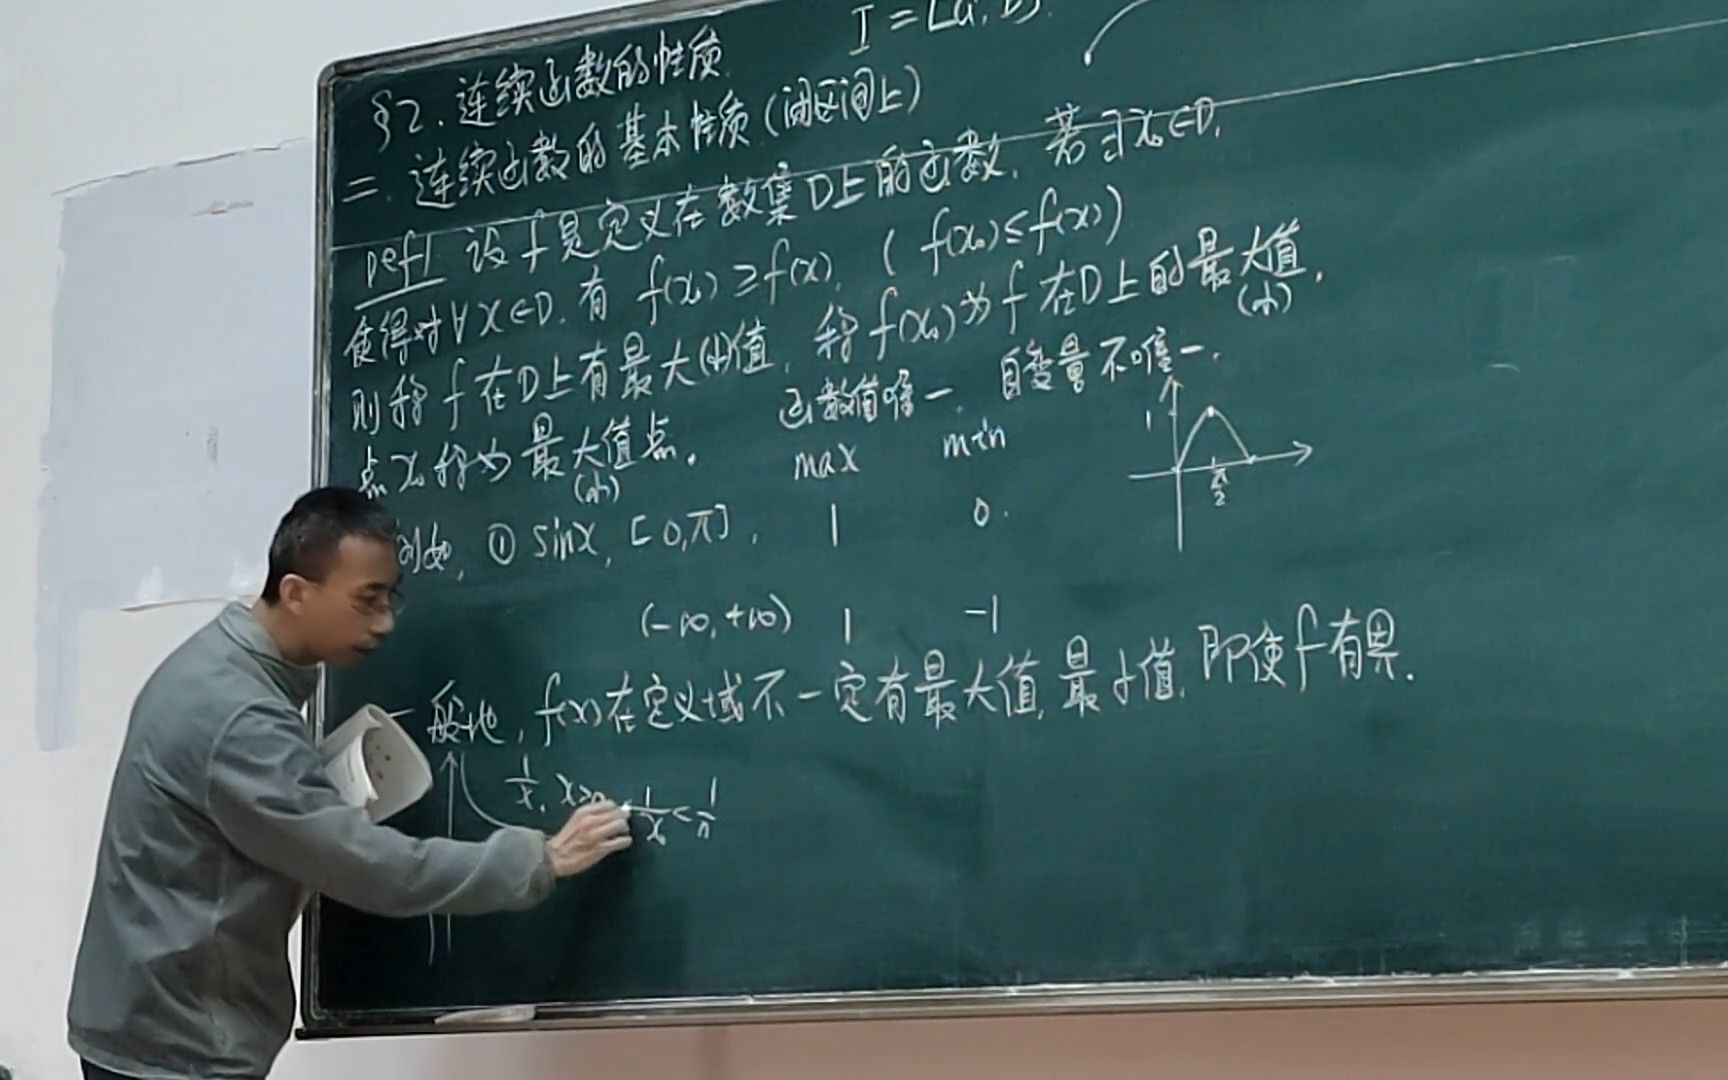 I = [a, b].
§2. 连续函数的性质.
二. 连续函数的基本性质 (闭区间上)
Def1 设 f 是定义在数集D上的函数. 若∃x₀∈D,
使得对∀x∈D. 有 f(x₀) ≥ f(x). ( f(x₀) ≤ f(x) )
则称 f 在D上有最大(小)值. 称 f(x₀) 为 f 在D上的最大值.
(小)
点x₀称为最大值点.
(小)
函数值唯一. 自变量不唯一.
max min
例如, ① sinx, [0,π]. 1 0.
1
π/2
(-∞,+∞) 1 -1
一般地, f(x)在定义域不一定有最大值, 最小值. 即使f有界.
1/x, x>0 1/x₀ < 1/n